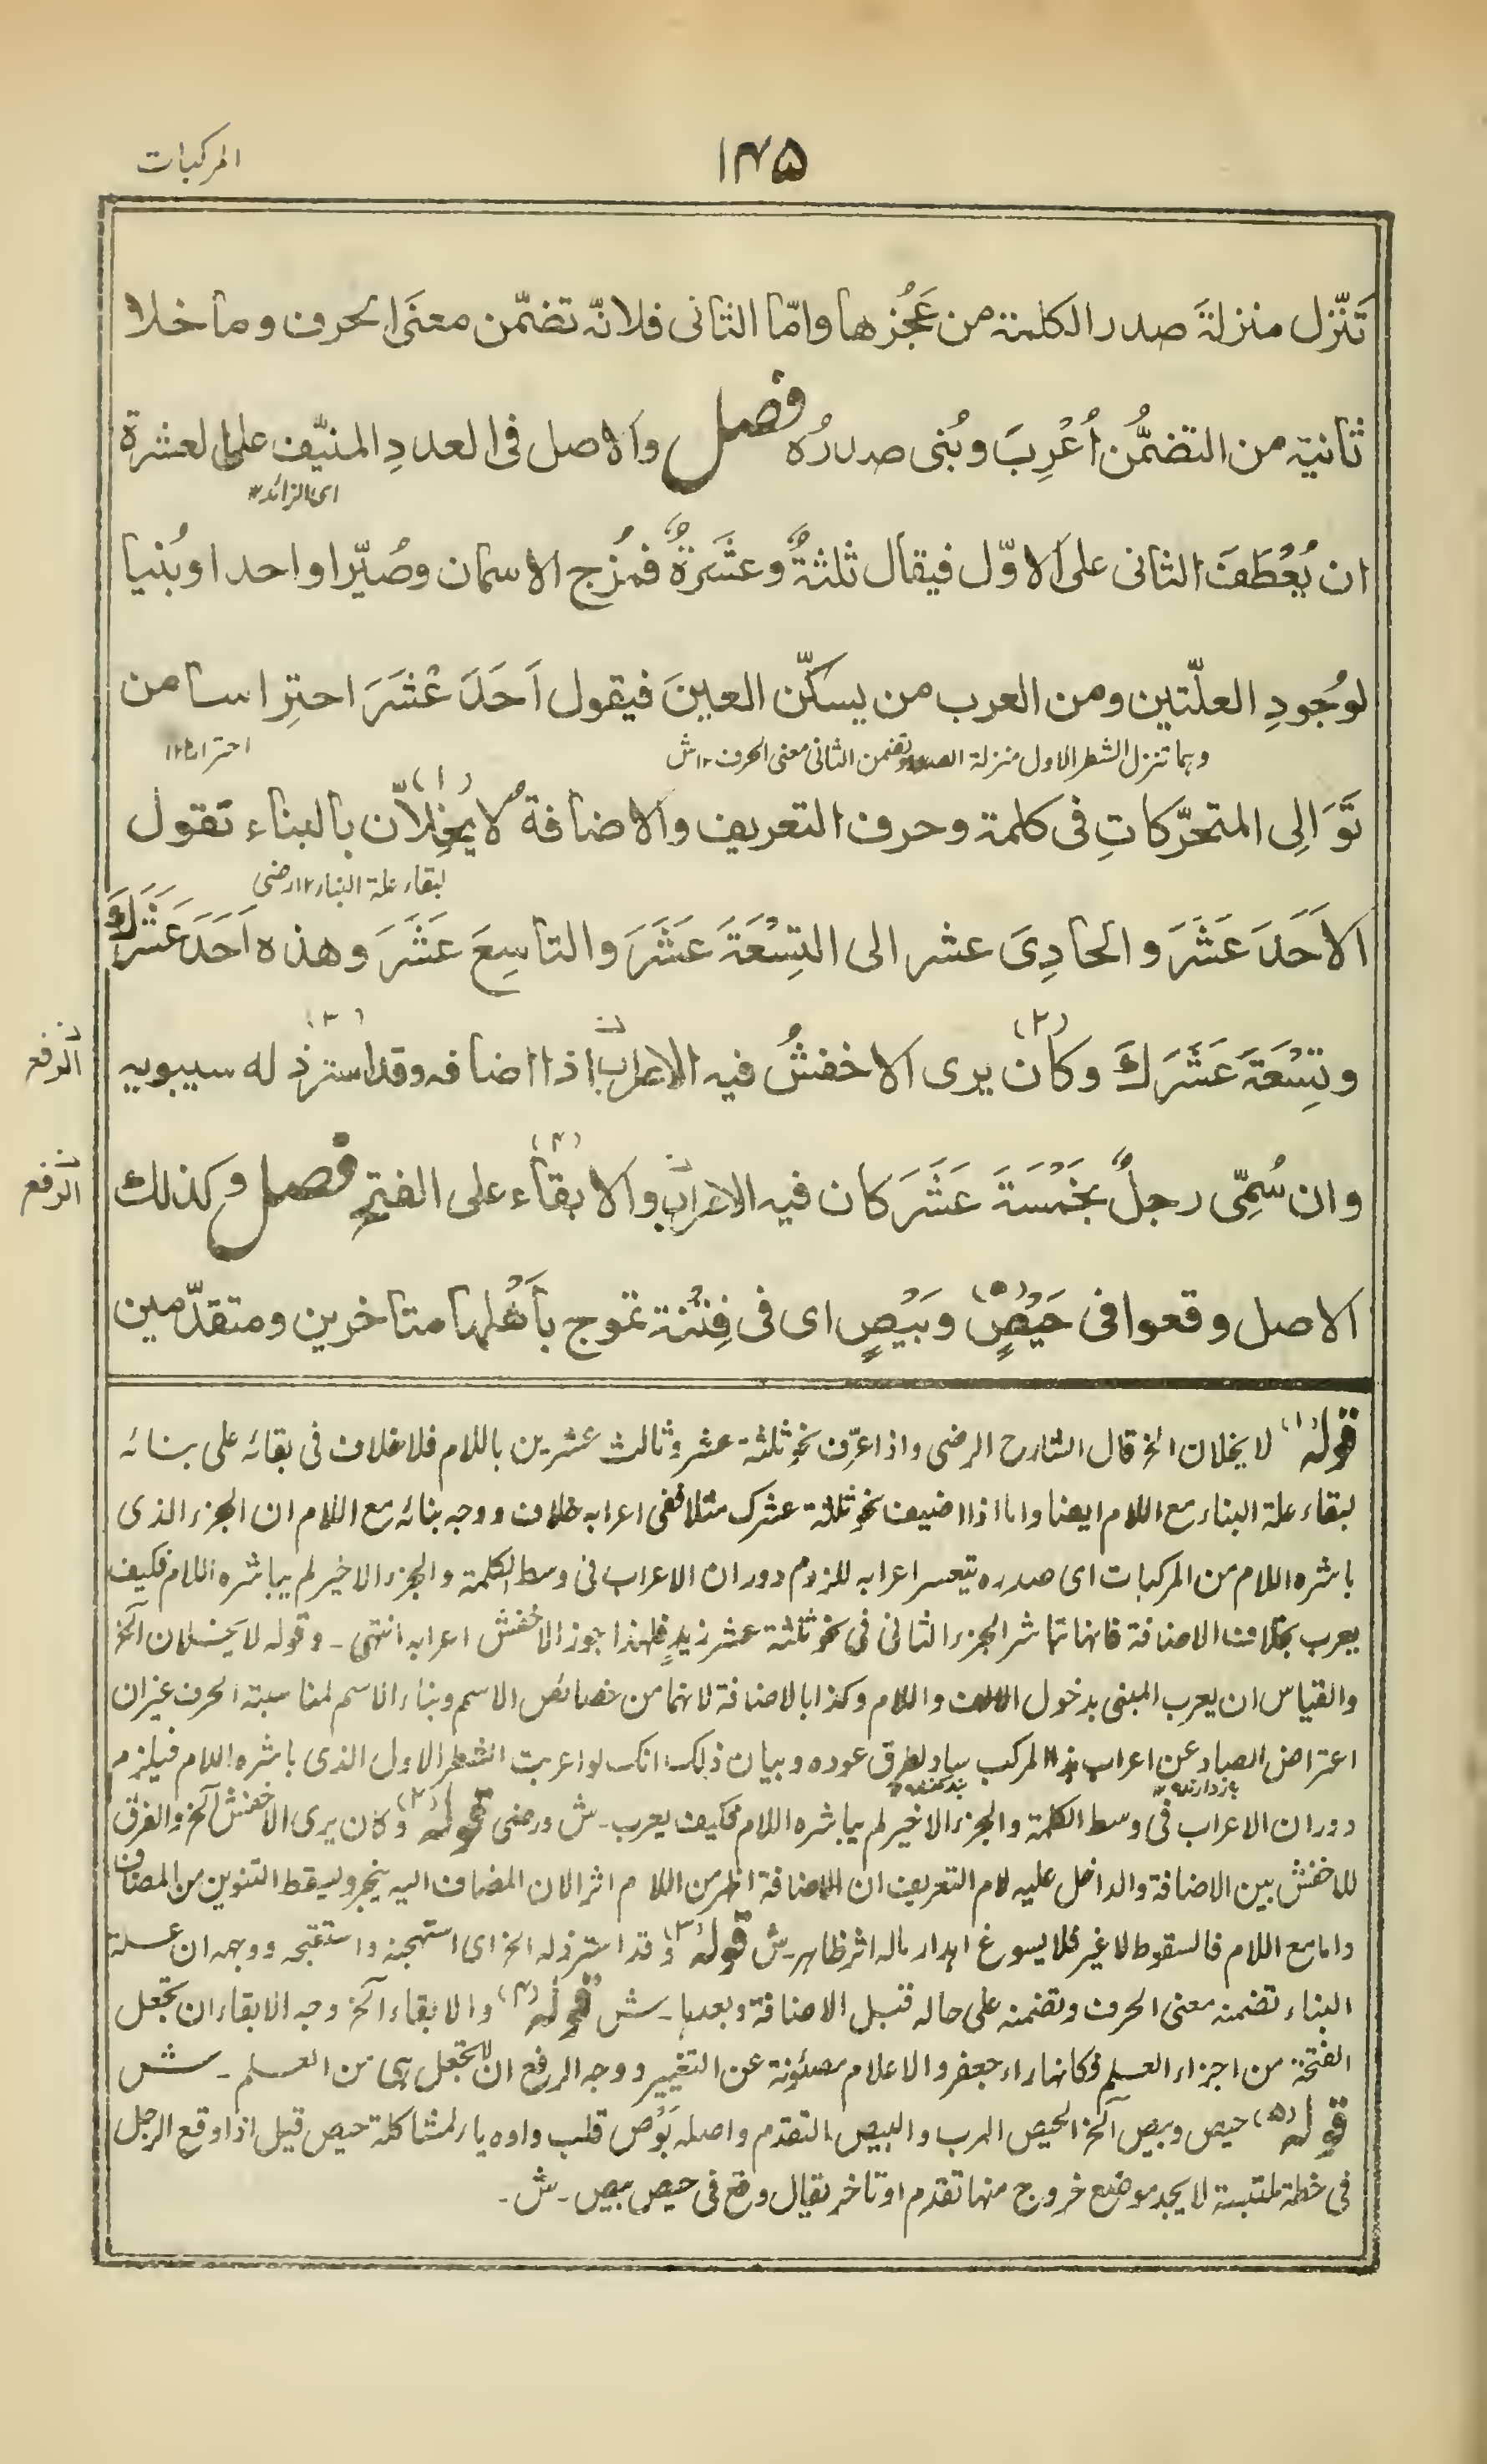 المركبات
١٤٥
تَنَزّل منزلةَ صدر الكلمة من عَجُزها وامّا الثانى فلانّه تضمّن معنَى الحرف وما خلا
ثانيه من التضمُّن اُعْرِبَ وبُنى صدرُه فصل والاصل فى العددِ المنيّف على العشرة
اى الزائد
ان يُعْطَفَ الثانى على الاوّل فيقال ثلثةٌ وعشَرةٌ فمُزج الاسمان وصُيّرا واحدا وبُنيا
لوُجودِ العلّتين ومن العرب من يسكّن العينَ فيقول اَحَدَ عْشَرَ احتِراسا من
وهما تنزل الشطر الاول منزلة الصدر وتضمن الثانى معنى الحرف ١٢ ش
احترازا ١٢
تَوَالِى المتحرّكاتِ فى كلمة وحرف التعريف والاضافة لا يُخِلاّن بالبناء تقول (١)
لبقاء علة البناء ١٢ رضى
الاَحَدَ عَشَرَ والحادِىَ عشر الى التِسْعَةَ عَشَرَ والتاسِعَ عَشَرَ وهذه اَحَدَ عَشَرَكَ
وتِسْعَةَ عَشَرَكَ وكان (٢) يرى الاخفشُ فيه الاعراب اذا اضافه وقد استرذ (٣) له سيبويه
الرفع
وان سُمِّى رجلٌ بخَمْسَةَ عَشَرَ كان فيه الاعراب والابقاء (٤) على الفتح فصل وكذلك
الرفع
الاصل وقعوا فى حَيْصٍ (٥) وبَيْصٍ اى فى فِتْنة تموج بأَهْلها متاخرين ومتقدّمين
قوله (١) لا يخلان الخ قال الشارح الرضى واذا عرّف نحو ثلثة عشر وثالث عشرين باللام فلا خلاف فى بقائه على بنائه
لبقاء علة البناء مع اللام ايضا واما اذا اضيف نحو ثلثة عشرك مثلا ففى اعرابه خلاف ووجه بنائه مع اللام ان الجزء الذى
باشره اللام من المركبات اى صدره يتعسر اعرابه للزوم دوران الاعراب فى وسط الكلمة والجزء الاخير لم يباشره اللام فكيف
يعرب بخلاف الاضافة فانها تباشر الجزء الثانى فى نحو ثلثة عشر زيدٍ فلهذا جوز الاخفش اعرابه انتهى ـ وقوله لا يخلان آلخ
والقياس ان يعرب المبنى بدخول الالف واللام وكذا بالاضافة لانهما من خصائص الاسم وبناء الاسم لمناسبة الحرف غيران
اعتراض الصاد عن اعراب هذا المركب ساد لطرق عوده وبيان ذلك انك لو اعربت الشطر الاول الذى باشره اللام فيلزم
باز دارنده
بند كننده
دوران الاعراب فى وسط الكلمة والجزء الاخير لم يباشره اللام فكيف يعرب ـ ش ورضى قوله (٢) وكان يرى الاخفش آلخ والفرق
للاخفش بين الاضافة والداخل عليه لام التعريف ان الاضافة اظهر من اللام اثرا لان المضاف اليه ينجر ويسقط التنوين من المضاف
واما مع اللام فالسقوط لا غير فلا يسوغ اهدار ما له اثر ظاهر ـ ش قوله (٣) وقد استرذله الخ اى استهجنه واستقبحه ووجهه ان علة
البناء تضمنه معنى الحرف وتضمنه على حاله قبل الاضافة وبعدها ـ ش قوله (٤) والابقاء آلخ وجه الابقاء ان تجعل
الفتحة من اجزاء العلم فكانها راء جعفر والاعلام مصئونة عن التغيير ووجه الرفع ان لا تجعل هى من العلم ـ ش
قوله (٥) حيص وبيص آلخ الحيص الهرب والبيص التقدم واصله بَوْص قلب واوه ياء لمشاكلة حيص قيل اذا وقع الرجل
فى خطة ملتبسة لا يجد موضع خروج منها تقدم او تاخر يقال وقع فى حيص بيص ـ ش ـ